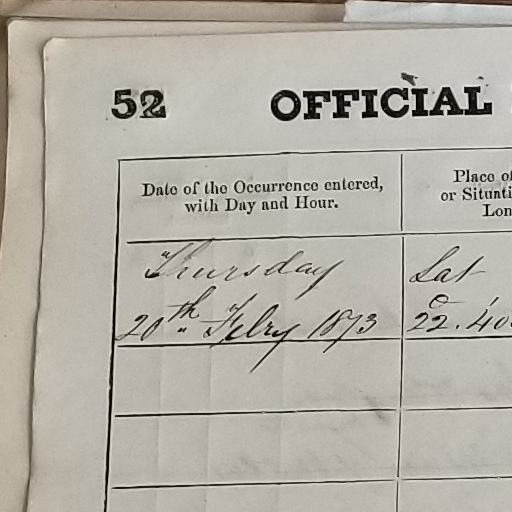 52 OFFICIAL
Date of the Occurrence entered,
with Day and Hour.
Place of
or Situati
Lon
Thursday
20th Febry 1873
Lat
22°.40'